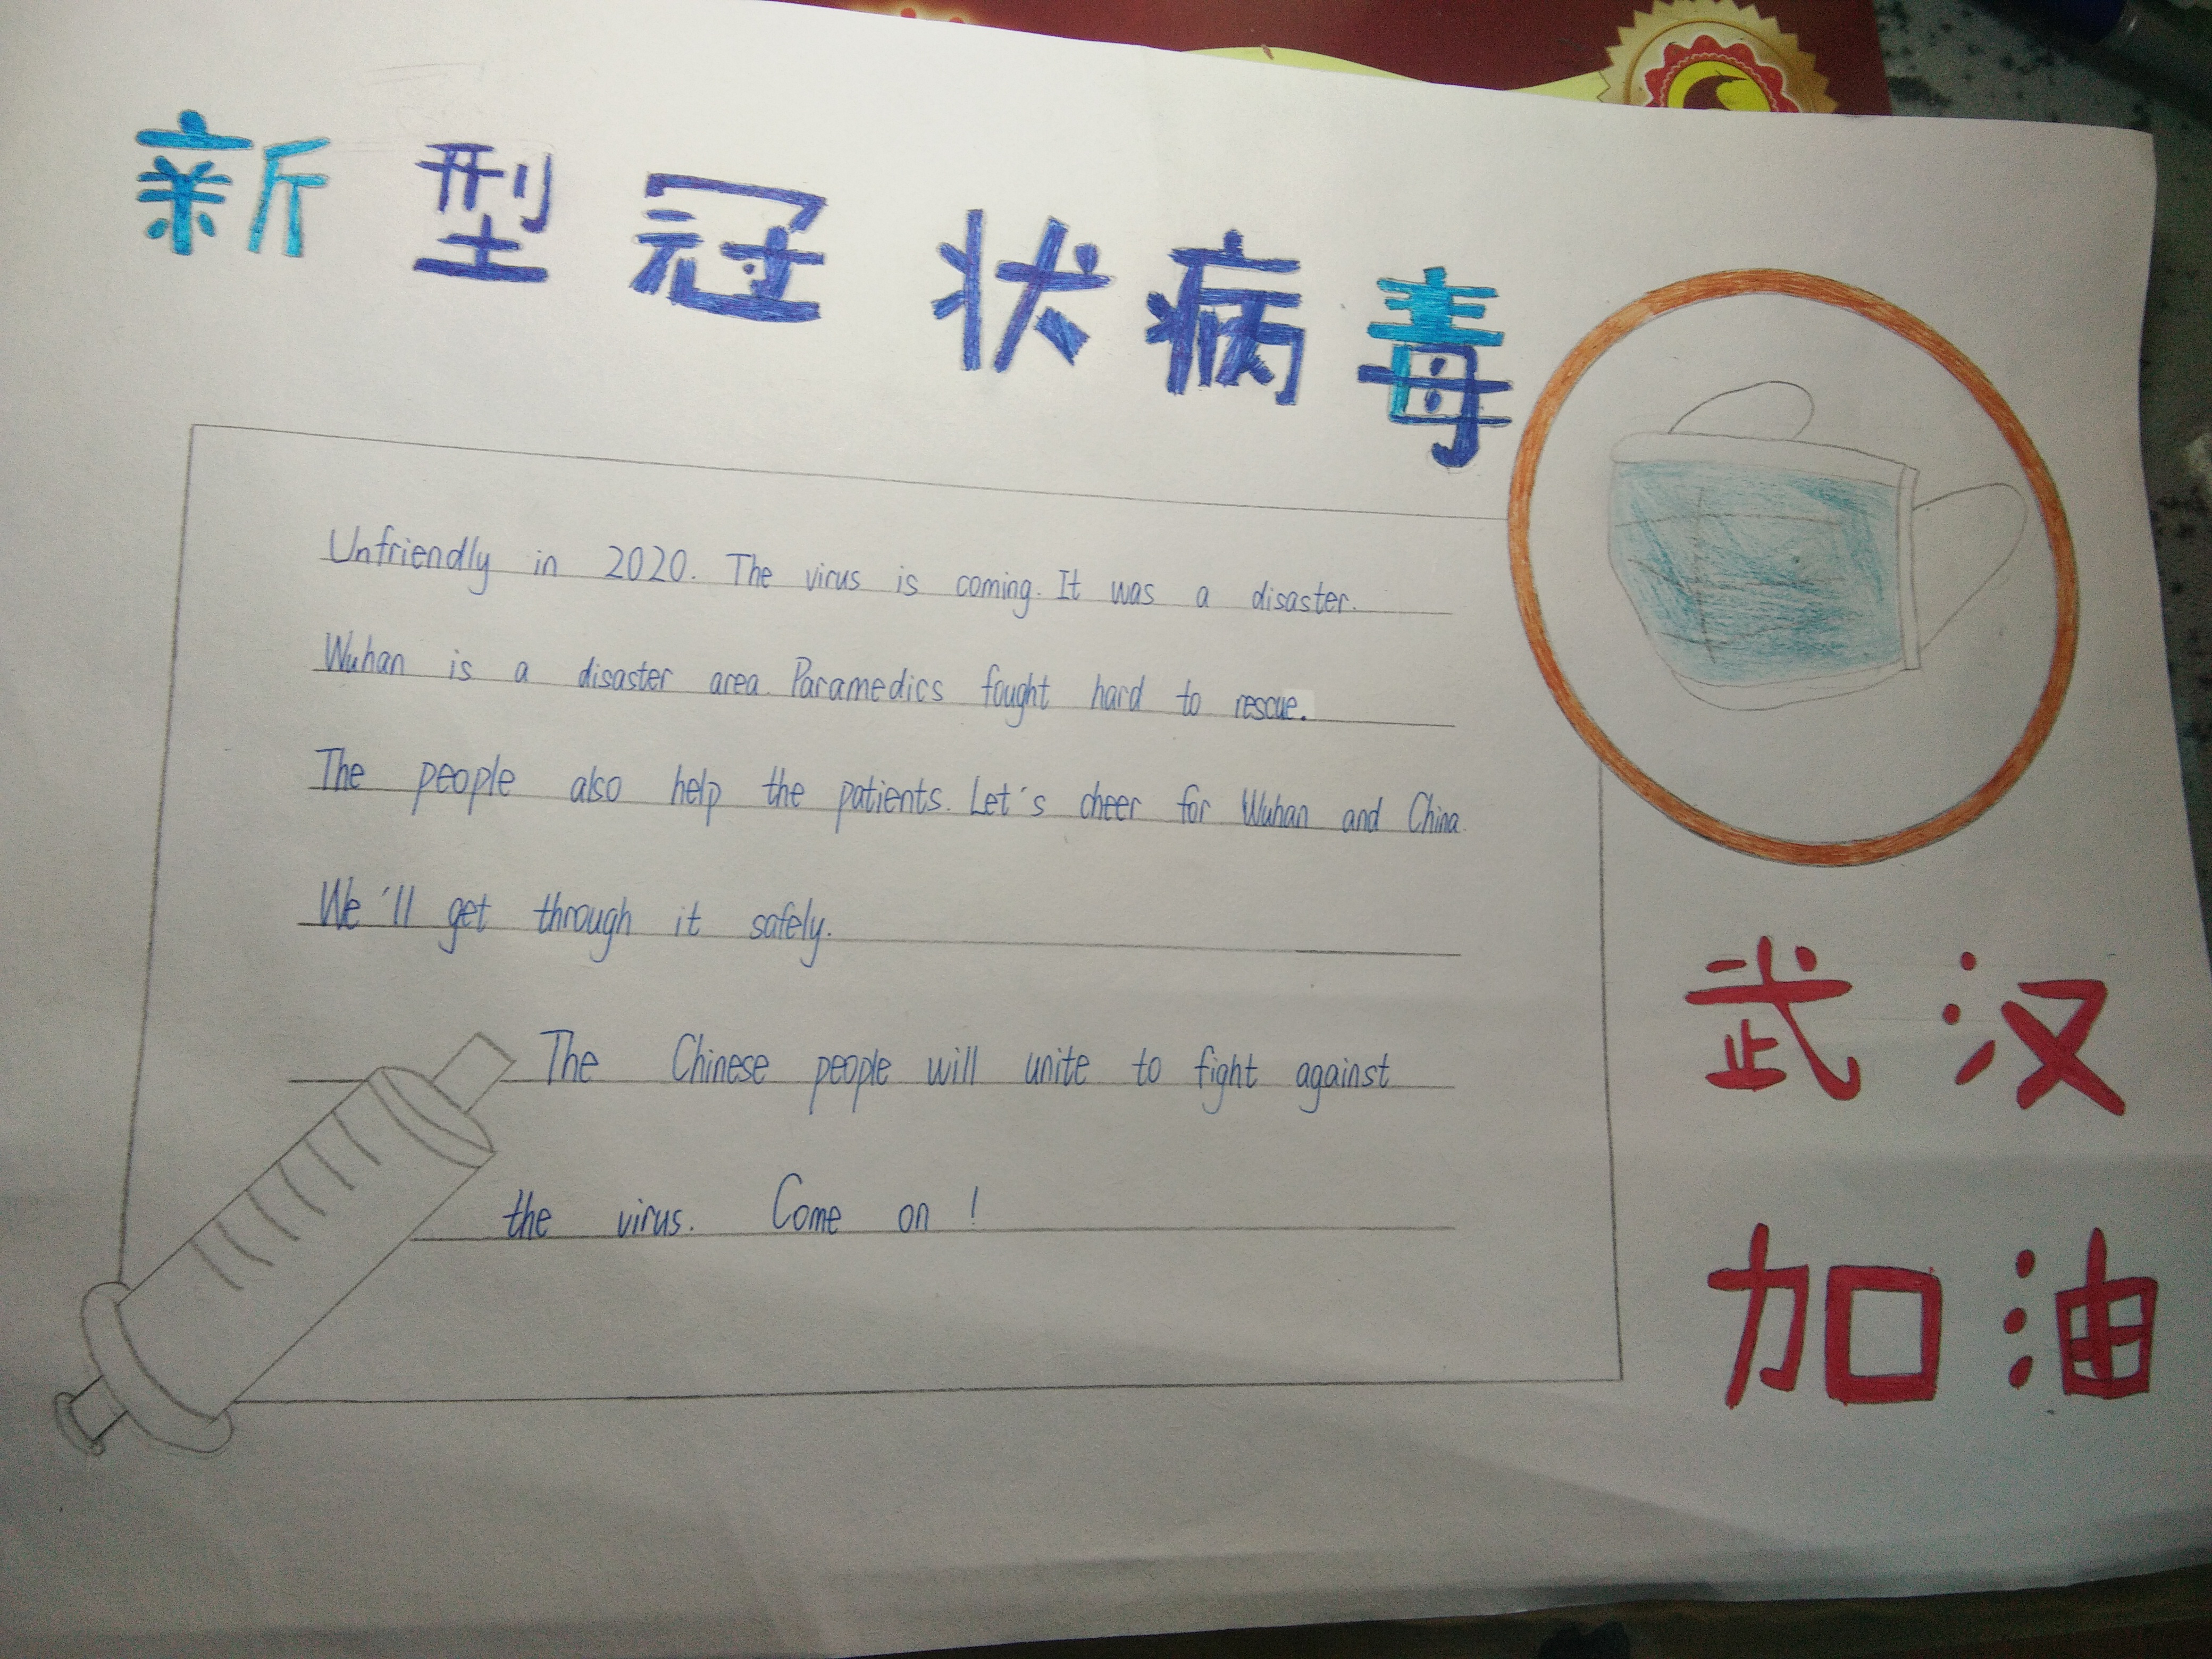 新型冠状病毒
Unfriendly in 2020. The virus is coming. It was a disaster.
Wuhan is a disaster area. Paramedics fought hard to rescue.
The people also help the patients. Let's cheer for Wuhan and China.
We'll get through it safely.
The Chinese people will unite to fight against
the virus. Come on!
武汉
加油